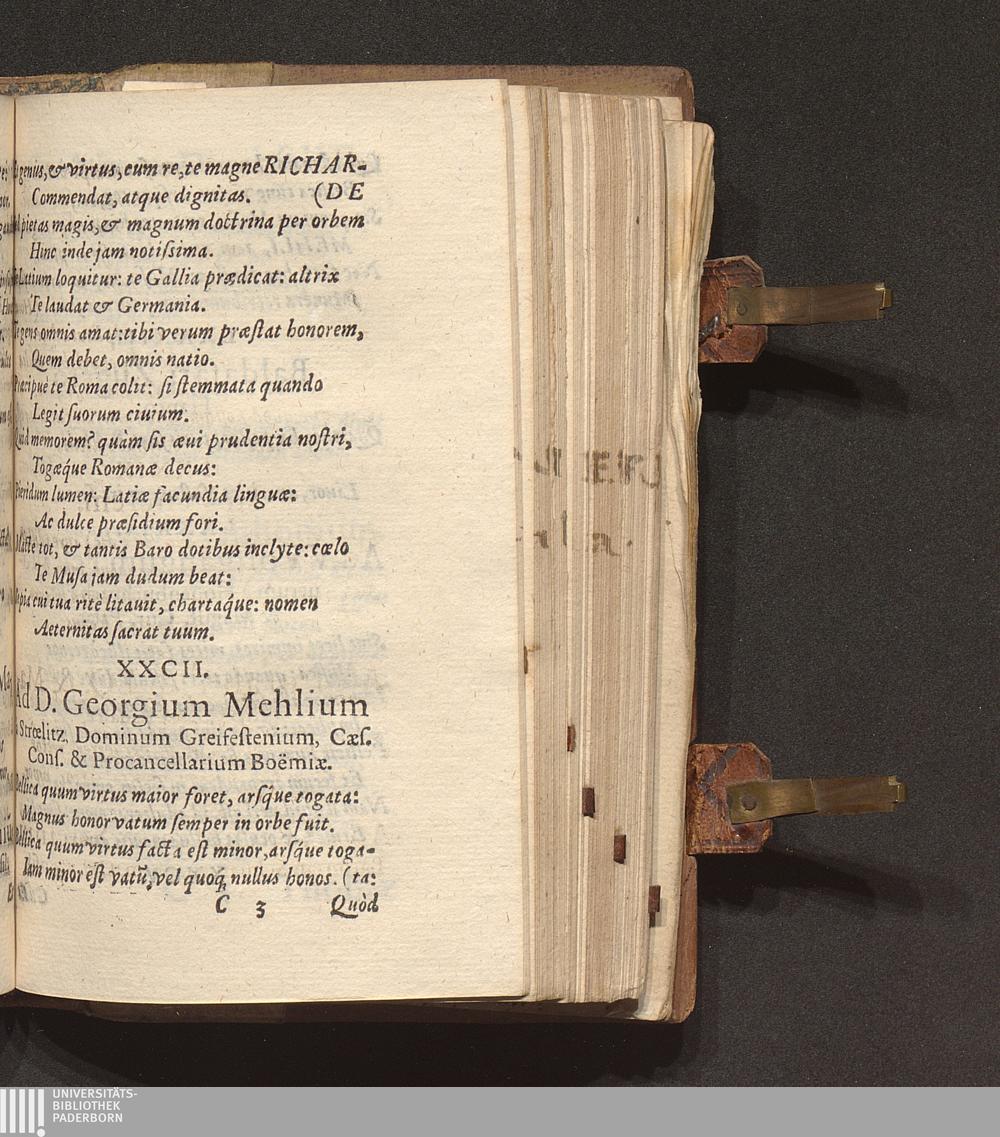 genius, & virtus, cum re, te magne RICHAR-
Commendat, atque dignitas. (DE
pietas magis, & magnum doctrina per orbem
Hinc inde jam notiſsima.
Latium loquitur: te Gallia prædicat: altrix
Te laudat & Germania.
Te gens omnis amat: tibi verum præſtat honorem,
Quem debet, omnis natio.
Præcipuè te Roma colit: ſi ſtemmata quando
Legit ſuorum ciuium.
Quid memorem? quàm ſis æui prudentia noſtri,
Togæq́ue Romanæ decus:
Pieridum lumen: Latiæ facundia linguæ:
Ac dulce præſidium fori.
Macte tot, & tantis Baro dotibus inclyte: cœlo
Te Muſa jam dudum beat:
cui tua ritè litauit, chartaq́ue: nomen
Aeternitas ſacrat tuum.
XXCII.
Ad D. Georgium Mehlium
Strœlitz, Dominum Greifeſtenium, Cæſ.
Conſ. & Procancellarium Boëmiæ.
Bellica quum virtus maior foret, arſq́ue togata:
Magnus honor vatum ſemper in orbe fuit.
Bellica quum virtus facta eſt minor, arſq́ue toga-
Iam minor eſt vatũ, vel quoq; nullus honos. (ta:
C 3 Quòd
UNIVERSITÄTS-
BIBLIOTHEK
PADERBORN